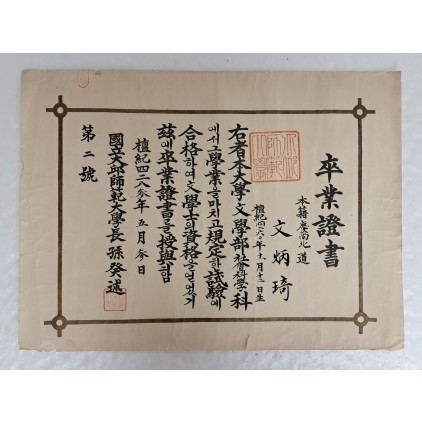 卒業證書
本籍 慶尚北道
文炳琦
檀紀四二六〇年十一月十二日生
右者本大學文學部社會科學科
에서그學業을마치고規定한試驗에
合格하여文學士의資格을얻었기
玆에卒業證書를授與함
檀紀四二八參年五月參日
國立大邱師範大學長 孫癸述
第二號